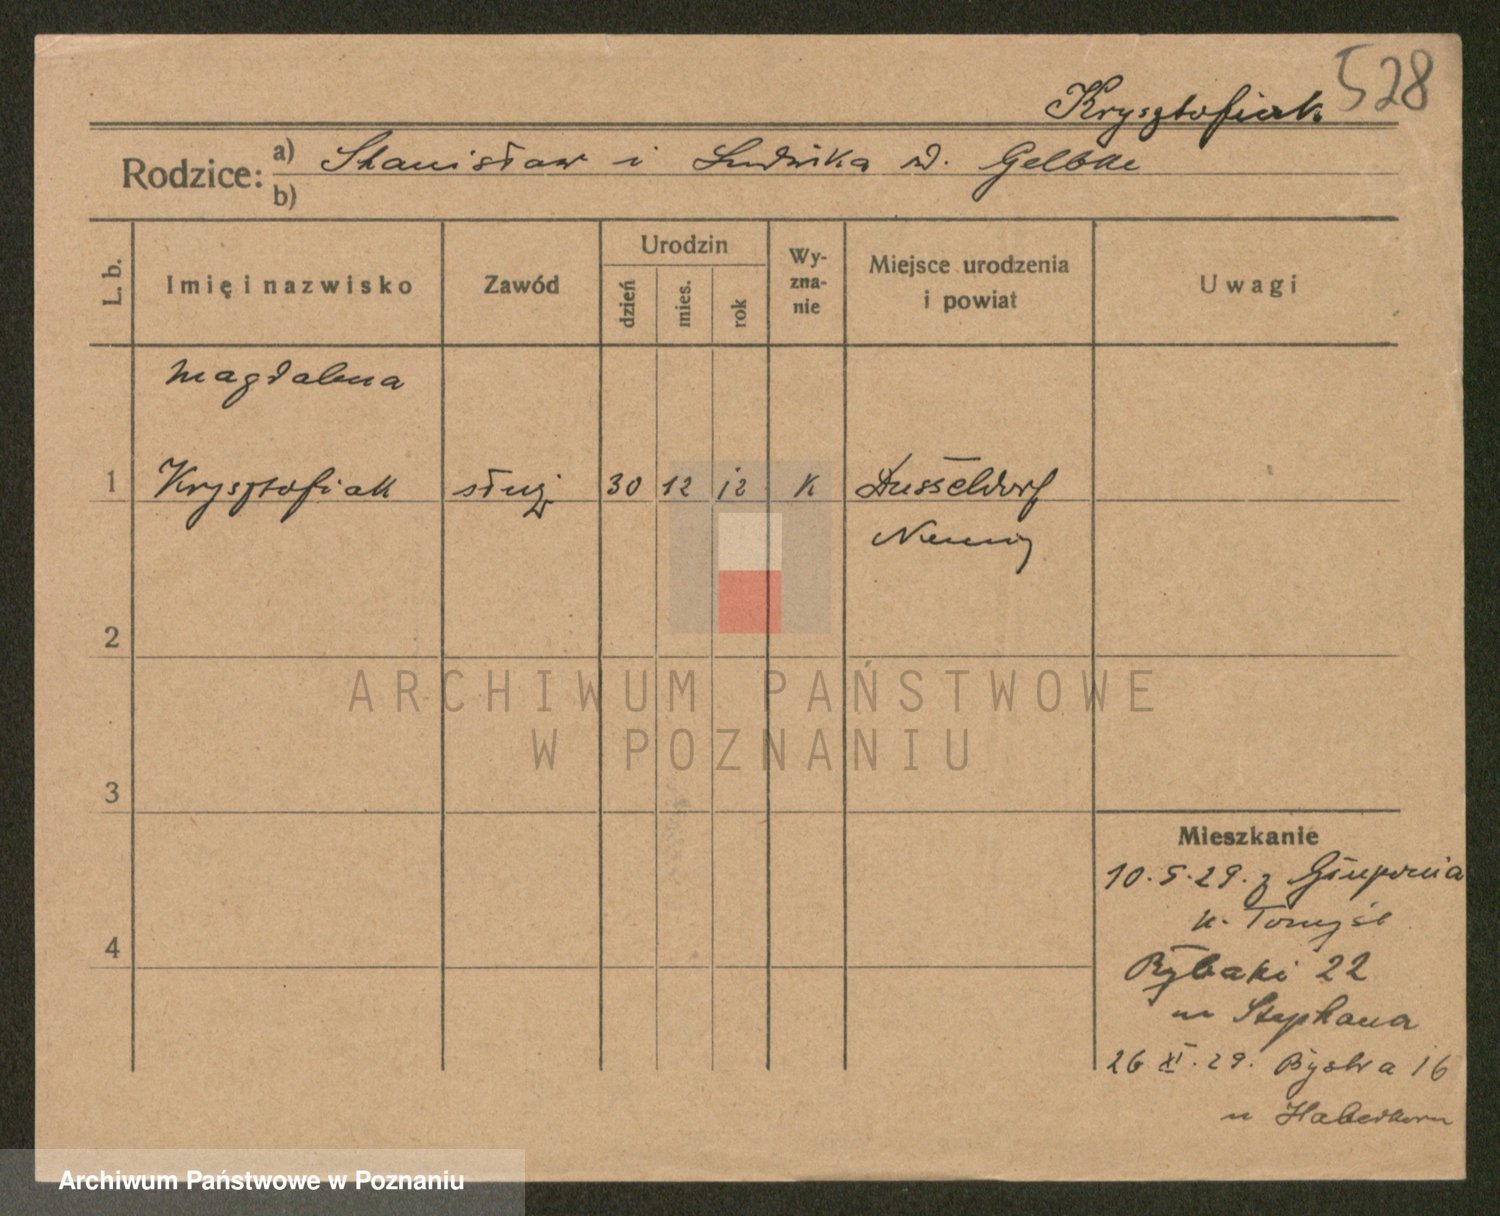 528
Krysztofiak
Rodzice: a) Stanisław i Ludwika d. Gelbke
b)
L. b. Imię i nazwisko Zawód Urodzin dzień mies. rok Wyznanie Miejsce urodzenia i powiat Uwagi
Magdalena
1 Krysztofiak służ 30 12 12 K Dusseldorf
2
3
4
Mieszkanie
10.5.29. z Głuponia
n. Tomyśl
Rybaki 22
u Stephana
26 XI. 29. Bystra 16
u Haberkorn
ARCHIWUM PAŃSTWOWE
W POZNANIU
Archiwum Państwowe w Poznaniu